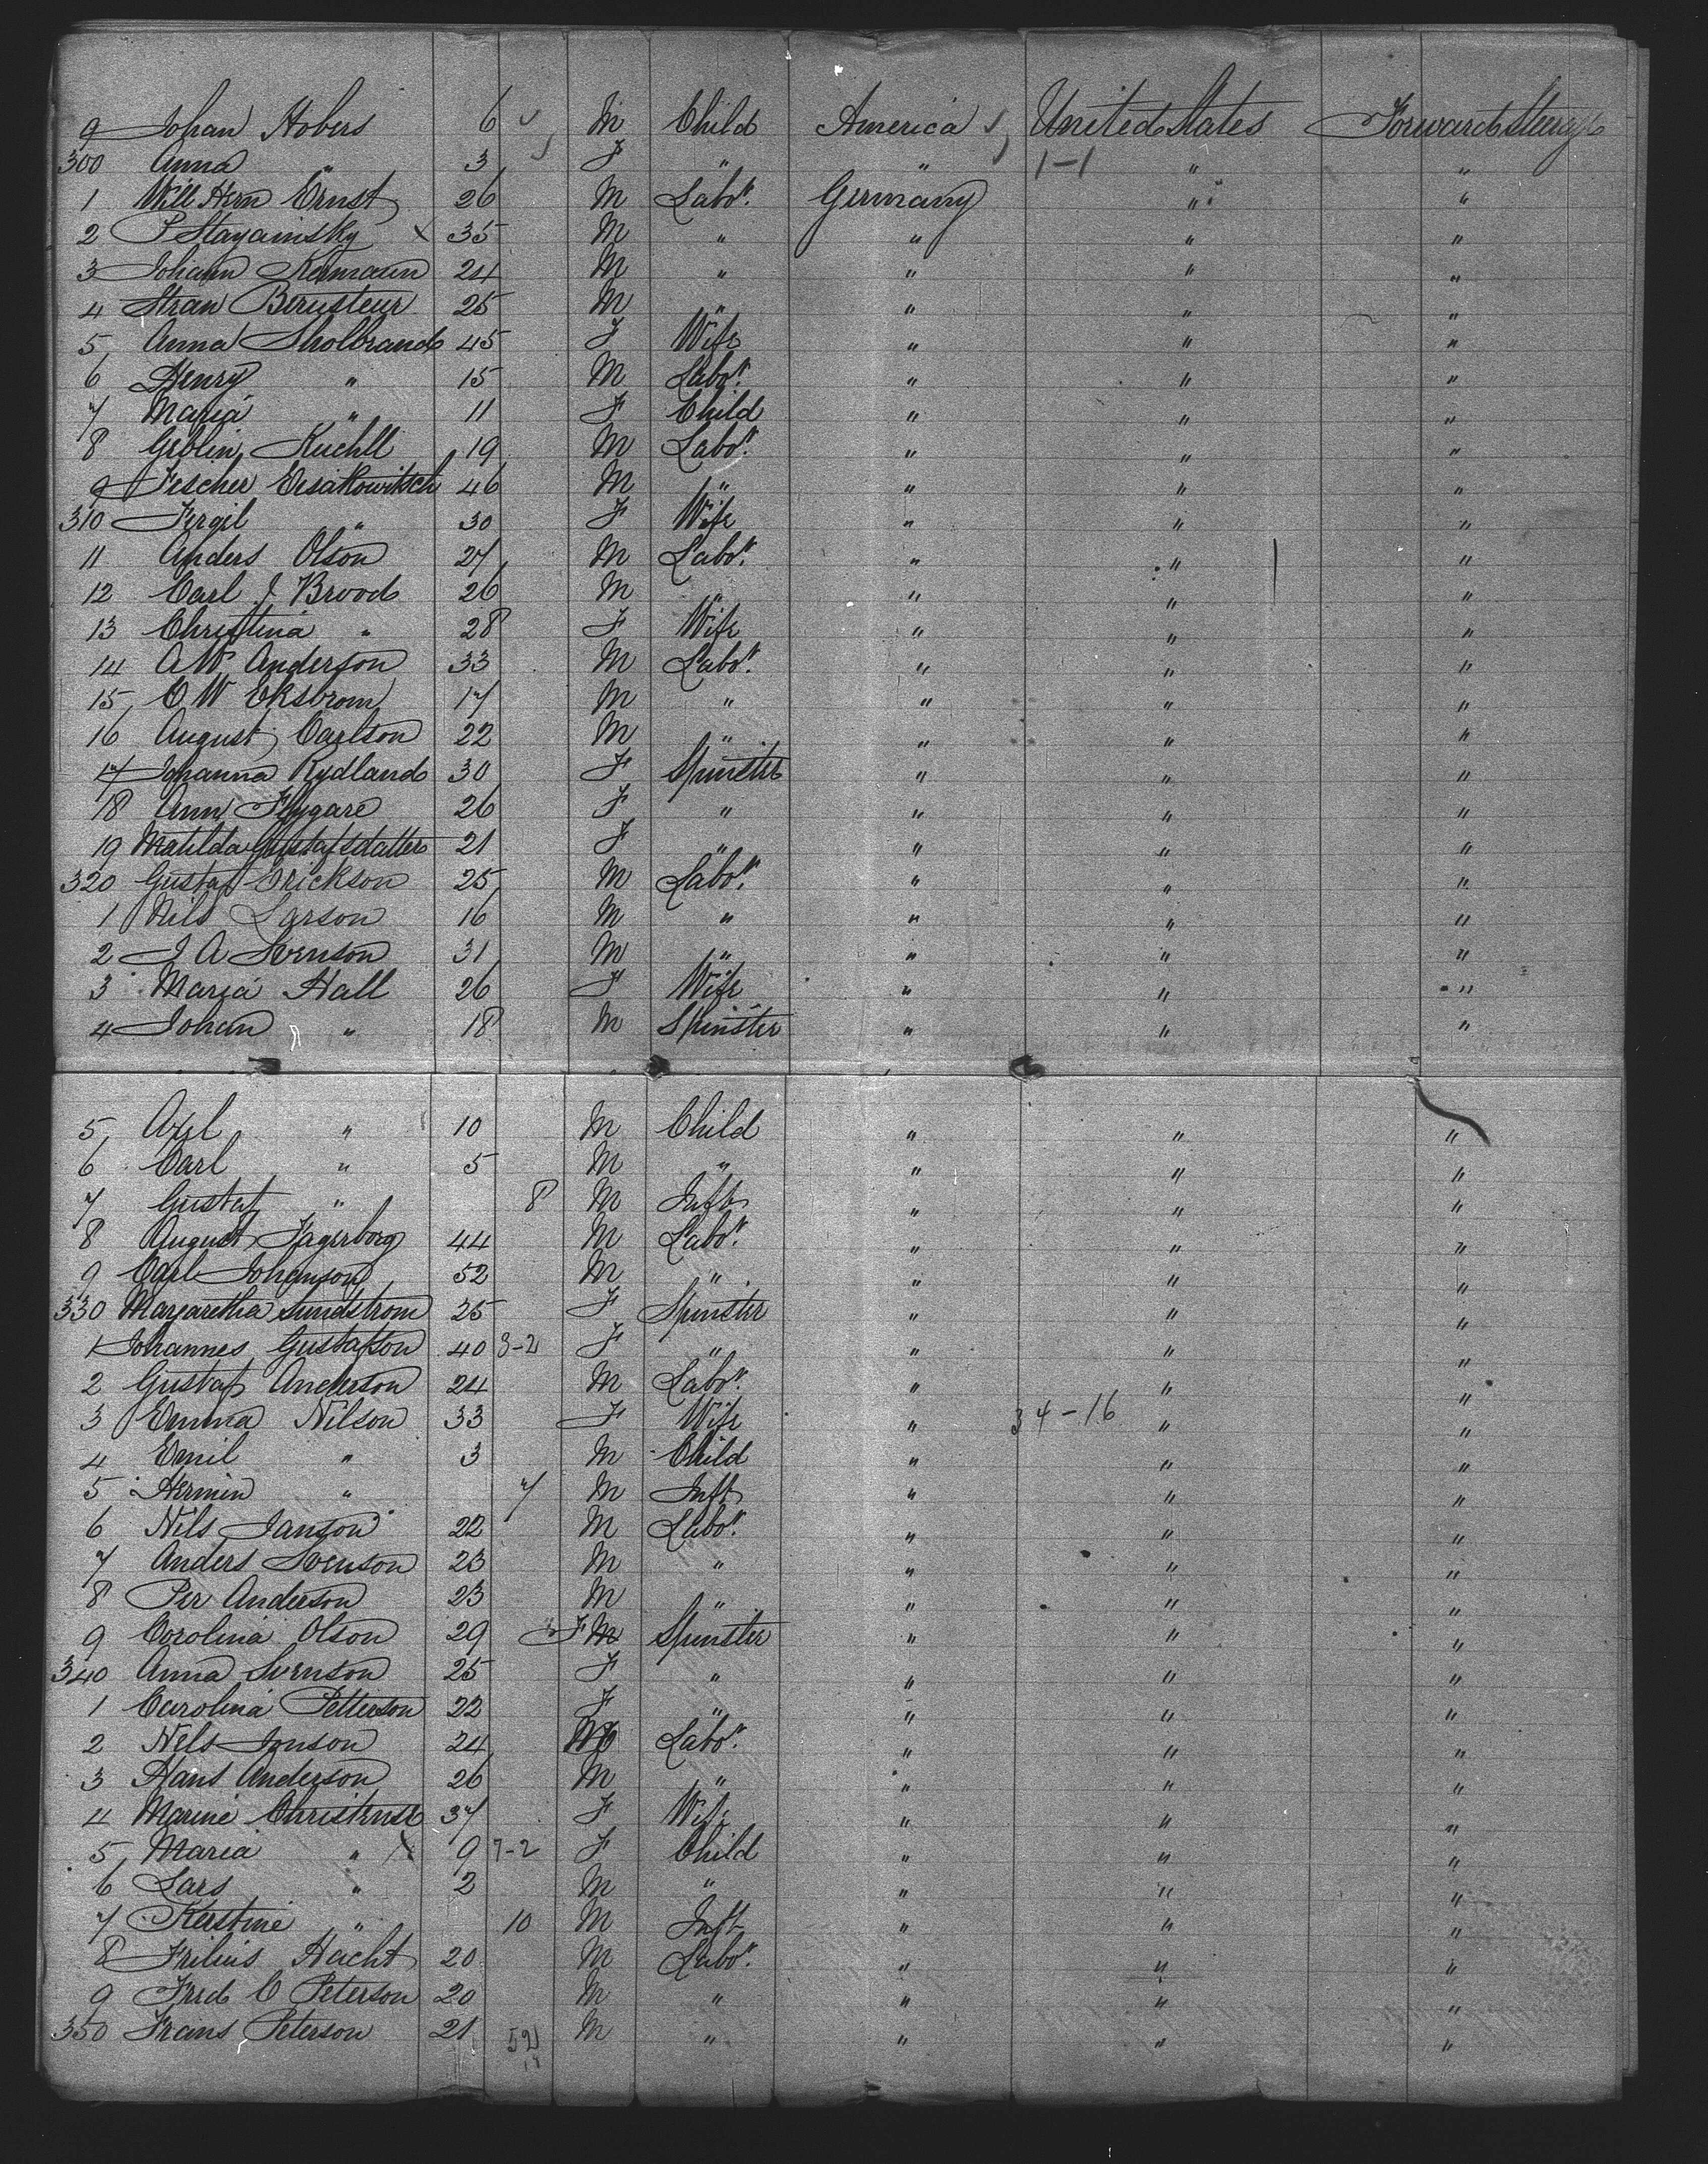 9 Johan Hobers 6 M Child America United States Forward Steerge
300 Anna " 3 F " " 1-1 " "
1 Will Hern Ernst 26 M Labor. Germany " "
2 P Stayainsky x 35 M " " " "
3 Johann Kermann 24 M " " " "
4 Stran Bernsteur 25 M " " " "
5 Anna Sholbrand 45 F Wife " " "
6 Henry " 15 M Labor. " " "
7 Maria " 11 F Child " " "
8 Geblin Kuchll 19 M Labor. " " "
9 Fescher Eisakowitsch 46 M " " " "
310 Fergil " 30 F Wife " " "
11 Anders Olson 27 M Labor. " " "
12 Carl J Brood 26 M " " " "
13 Christina " 28 F Wife " " "
14 A W Anderson 33 M Labor. " " "
15 O W Ekstrom 17 M " " " "
16 August Carlson 22 M " " " "
17 Johanna Rydland 30 F Spinster " " "
18 Ann Flygare 26 F " " " "
19 Matilda Gustafsdatter 21 F " " " "
320 Gustaf Erickson 25 M Labor. " " "
1 Nils Larson 16 M " " " "
2 J A Svenson 31 M " " " "
3 Maria Hall 26 F Wife " " "
4 Johan " 18 M Spinster " " "
5 Axel " 10 M Child " " "
6 Carl " 5 M " " " "
7 Gustaf " 8 M Inft " " "
8 August Fagerborg 44 M Labor. " " "
9 Carl Johanson 52 M " " " "
330 Margaretha Sundstrom 25 F Spinster " " "
1 Johannes Gustafson 40 3-2 F " " " "
2 Gustaf Anderson 24 M Labor. " " "
3 Emma Nilson 33 F Wife " 34-16 " "
4 Emil " 3 M Child " " "
5 Hermin " 7 M Inft " " "
6 Nils Janson 22 M Labor. " " "
7 Anders Svenson 23 M " " " "
8 Per Anderson 23 M " " " "
9 Corolina Olson 29 F M Spinster " " "
340 Anna Svenson 25 F " " " "
1 Carolina Petterson 22 F " " " "
2 Nels Jonson 24 M Labor. " " "
3 Hans Anderson 26 M " " " "
4 Marine Christense 37 F Wife " " "
5 Maria " x 9 7-2 F Child " " "
6 Lars " 2 M " " " "
7 Kerstine " 10 M Inft " " "
8 Frilius Hacht 20 M Labor. " " "
9 Fred C Peterson 20 M " " " "
350 Frans Peterson 21 52 M " " " "